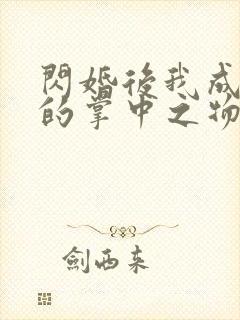 閃婚後我成
的掌中之物
劍西來